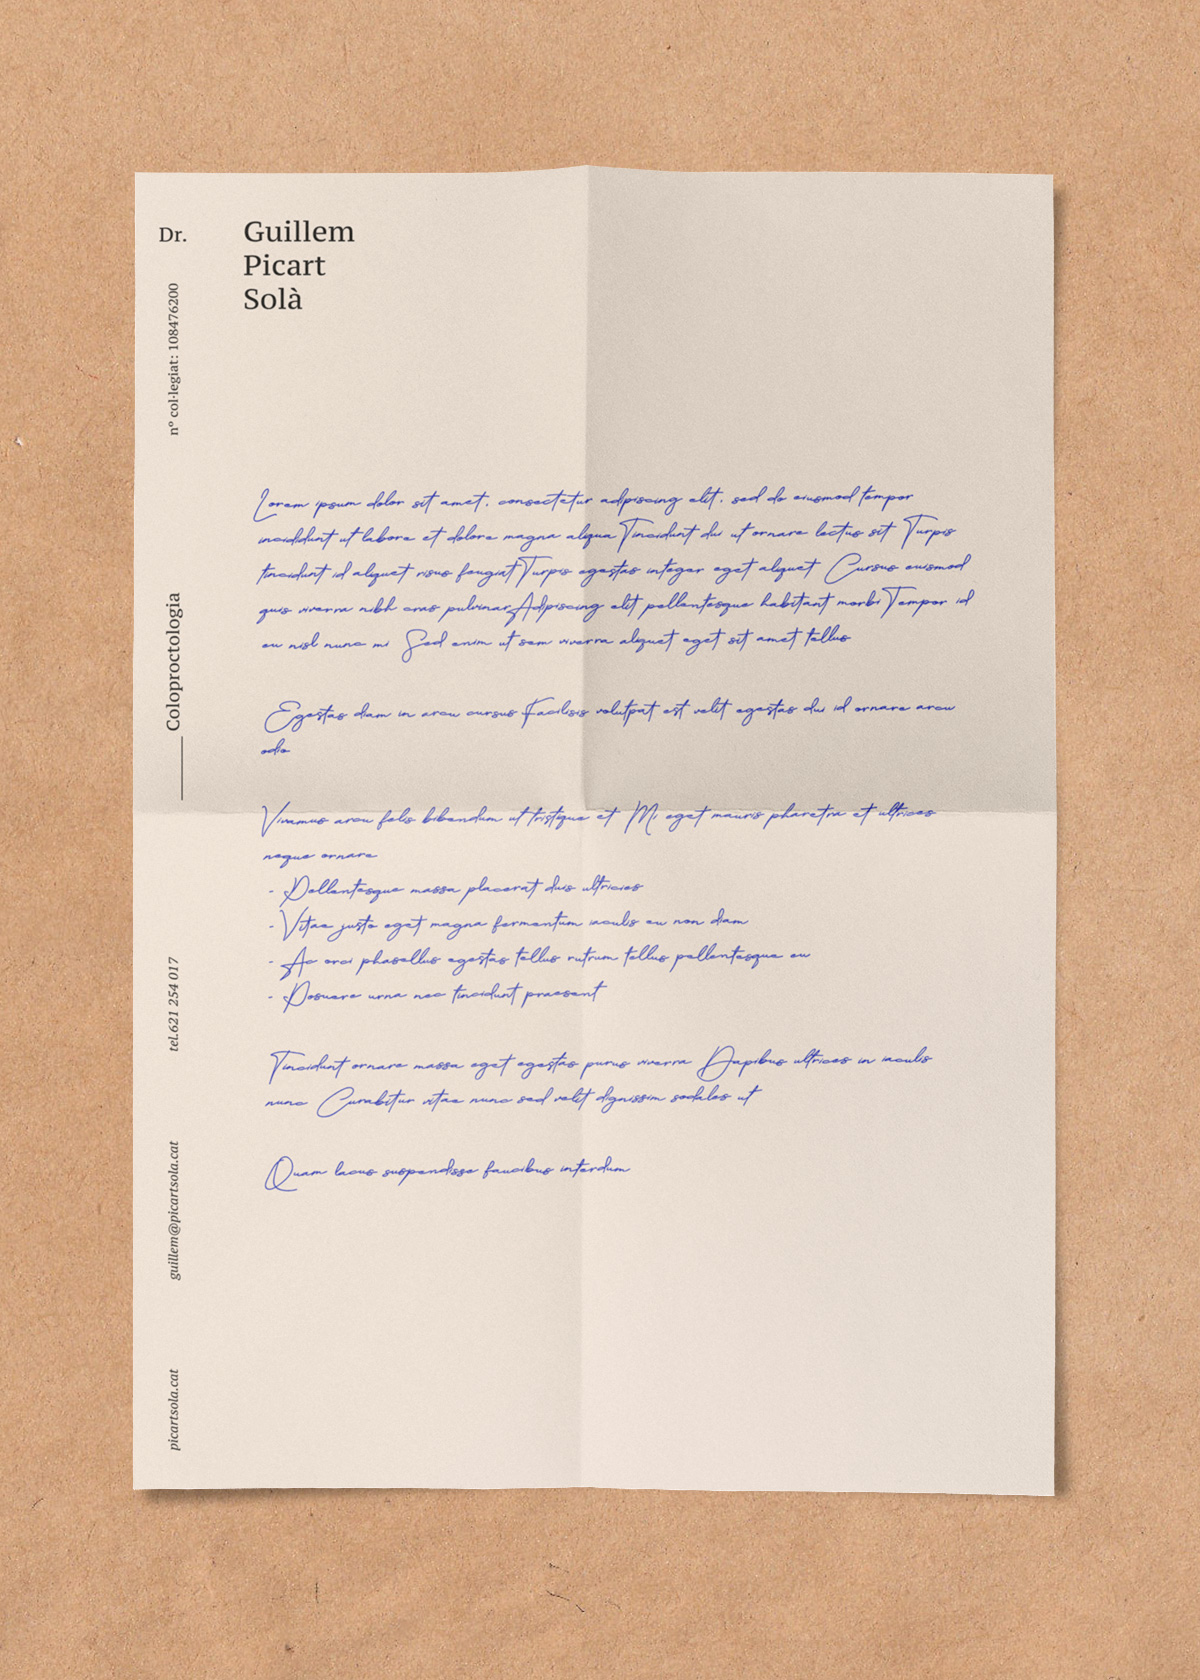 Dr.
Guillem
Picart
Solà
nº col·legiat: 108476200
Coloproctologia
tel.621 254 017
guillem@picartsola.cat
picartsola.cat
Lorem ipsum dolor sit amet, consectetur adpiscing elit, sed do eiusmod tempor
incididunt ut labore et dolore magna aliqua Tincidunt dui ut ornare lectus sit Turpis
tincidunt id aliquet risus feugiat Turpis egestas integer eget aliquet Cursus euismod
quis viverra nibh cras pulvinar Adpiscing elit pellentesque habitant morbi Tempor id
eu nisl nunc mi Sed enim ut sem viverra aliquet eget sit amet tellus
Egestas diam in arcu cursus Facilisis volutpat est velit egestas dui id ornare arcu
odio
Vivamus arcu felis bibendum ut tristique et Mi eget mauris pharetra et ultrices
neque ornare
- Pellentesque massa placerat duis ultricies
- Vitae justo eget magna fermentum iaculis eu non diam
- Ac orci phasellus egestas tellus rutrum tellus pellentesque eu
- Posuere urna nec tincidunt praesent
Tincidunt ornare massa eget egestas purus viverra Dapibus ultrices in iaculis
nunc Curabitur vitae nunc sed velit dignissim sodales ut
Quam lacus suspendisse faucibus interdum